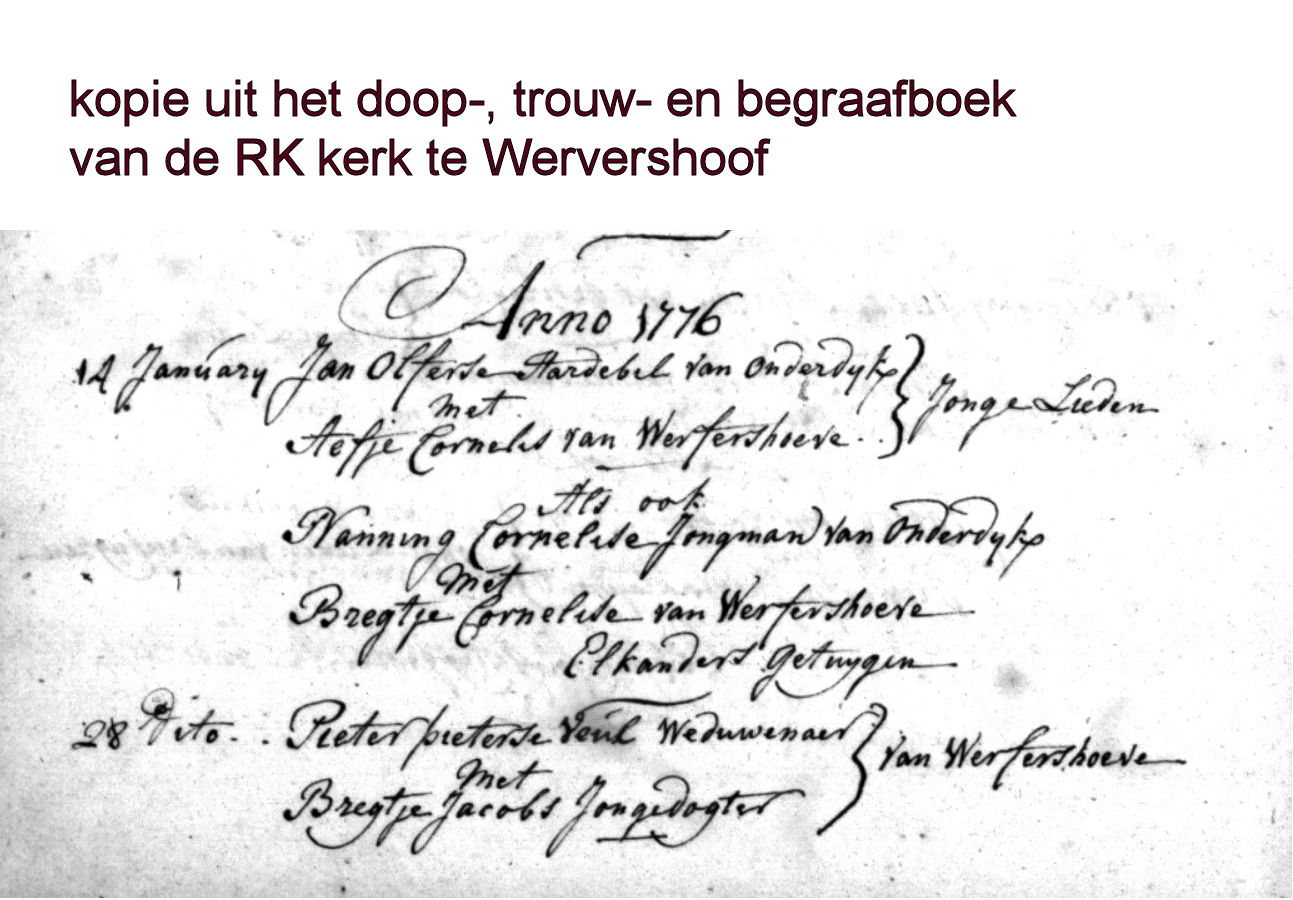 kopie uit het doop-, trouw- en begraafboek
van de RK kerk te Wervershoof
Anno 1776
14 January Jan Olferse Hardebel van Onderdyk } Jonge Lieden
met
Aefje Cornelis van Werfershoeve.
Als ook
Nanning Cornelise Jongman van Onderdyk
Met
Bregtje Cornelise van Werfershoeve
Elkanders Getuygen
28 Dito. . Pieter pieterse Weduwenaer } van Werfershoeve
Met
Bregtje Jacobs Jongedogter